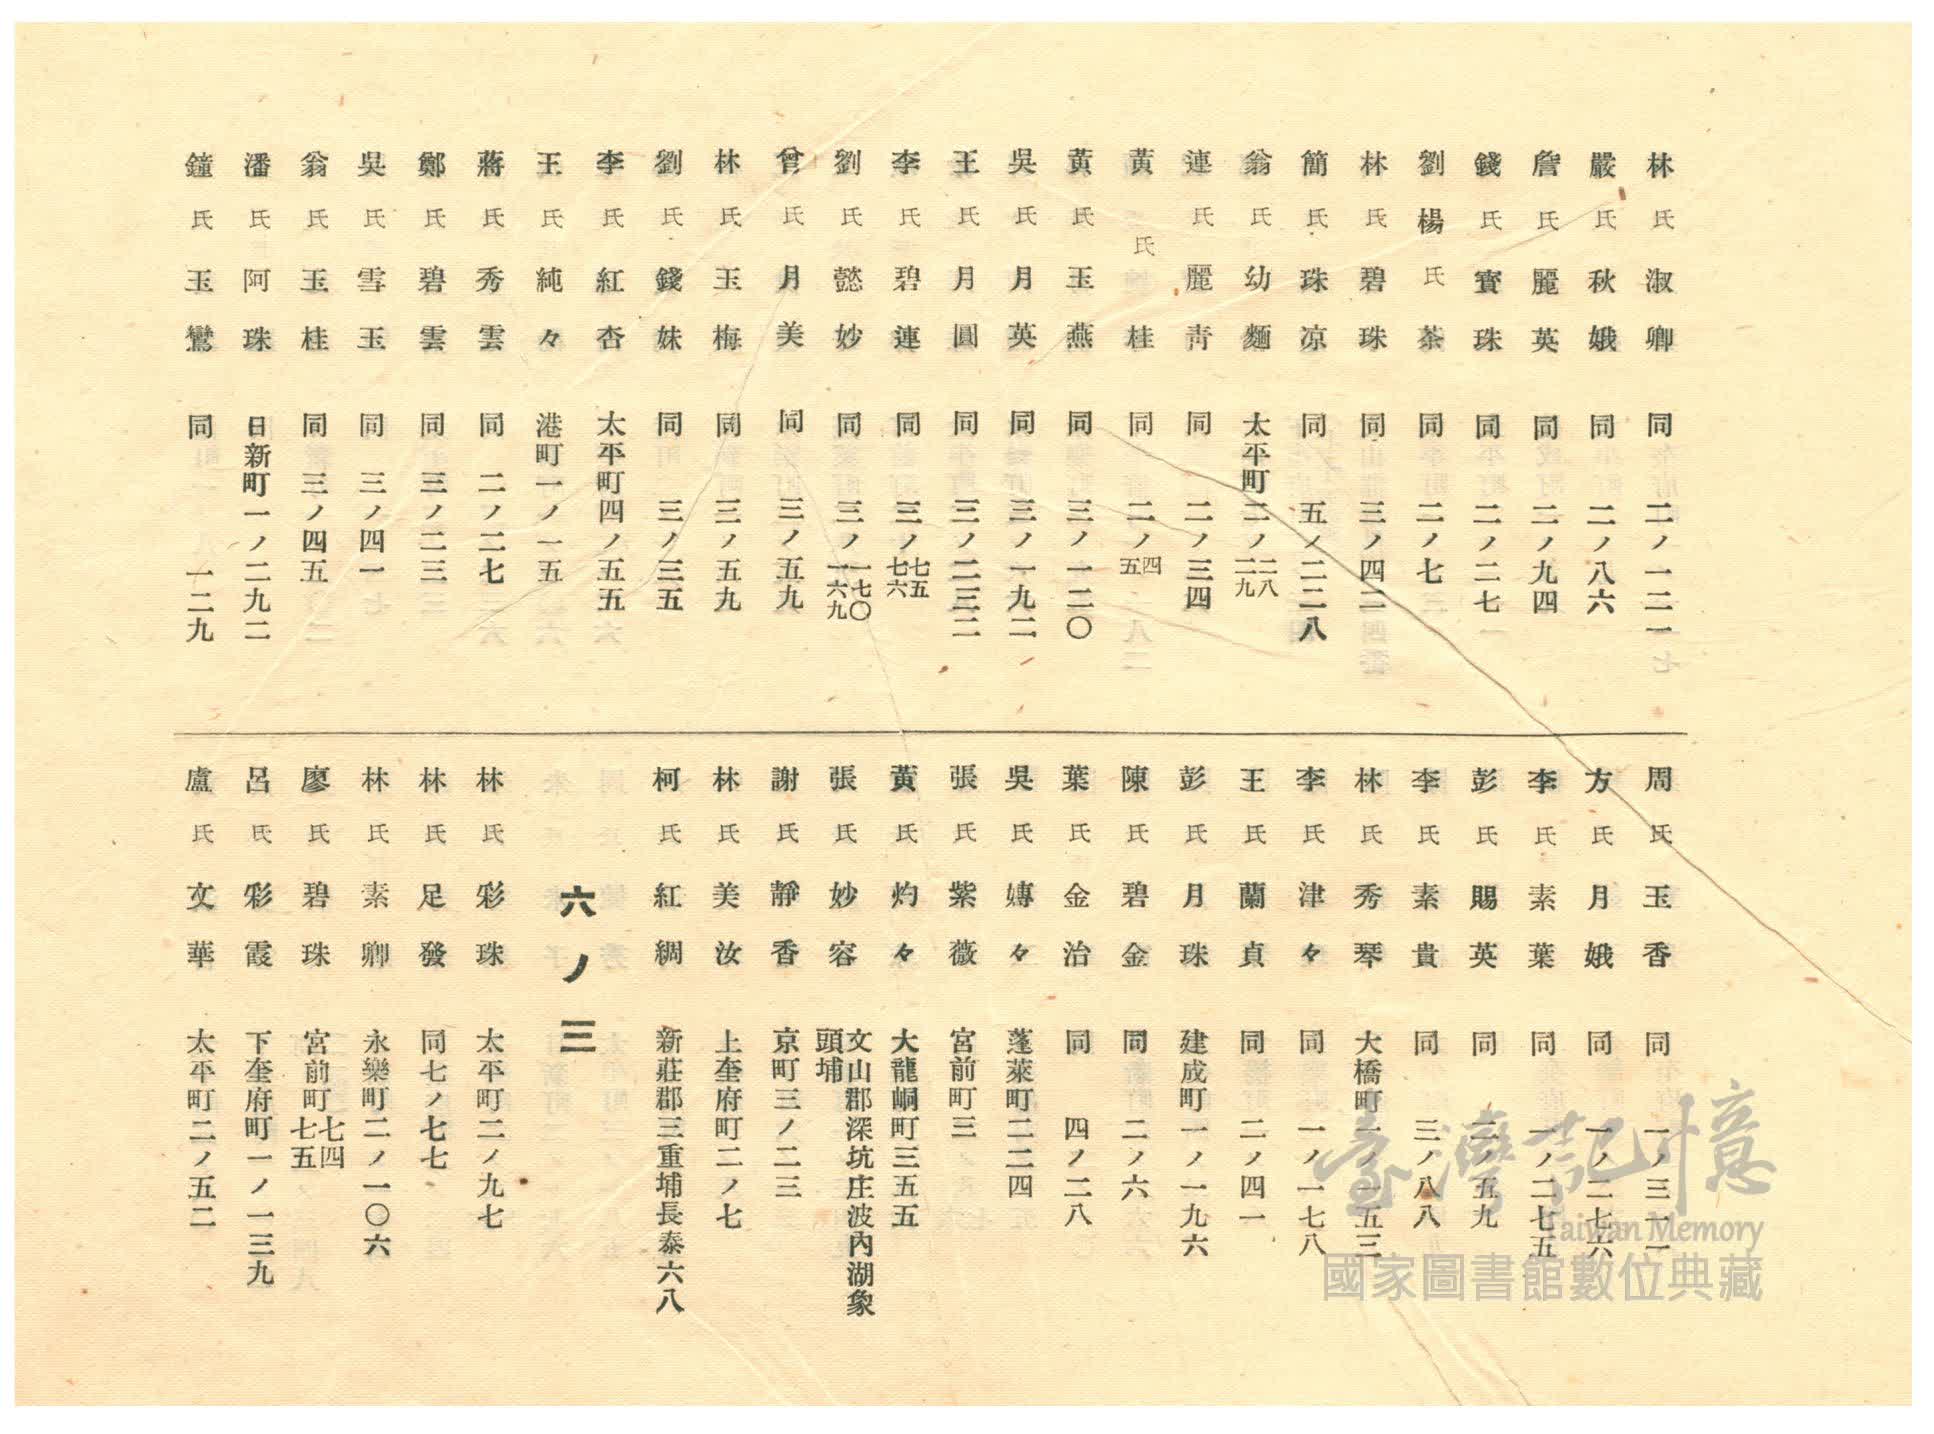 林氏淑卿 同 二ノ一二一
嚴氏秋娥 同 二ノ八六
詹氏麗英 同 二ノ九四
錢氏寶珠 同 二ノ二七
劉楊氏茶 同 二ノ七
林氏碧珠 同 三ノ四二
簡氏珠凉 同 五ノ二二八
翁氏幼麵 太平町二ノ二八二九
連氏麗青 同 二ノ三四
黃氏桂 同 二ノ四五
黃氏玉燕 同 三ノ一二〇
吳氏月英 同 三ノ一九二
王氏月圓 同 三ノ二三二
李氏碧連 同 三ノ七五七六
劉氏懿妙 同 三ノ一七〇一六九
曾氏月美 同 三ノ五九
林氏玉梅 同 三ノ五九
劉氏錢妹 同 三ノ三五
李氏紅杏 太平町四ノ五五
王氏純々 港町一ノ一五
蔣氏秀雲 同 二ノ二七
鄭氏碧雲 同 三ノ二三
吳氏雪玉 同 三ノ四一
翁氏玉桂 同 三ノ四五
潘氏阿珠 日新町一ノ二九二
鐘氏玉鸞 同 一二九
周氏玉香 同 一ノ三一一
方氏月娥 同 一ノ二七六
李氏素葉 同 一ノ二七五
彭氏賜英 同 二ノ五九
李氏素貴 同 三ノ八八
林氏秀琴 大橋町一ノ一五三
李氏津々 同 一ノ一七八
王氏蘭貞 同 二ノ四一
彭氏月珠 建成町一ノ一九六
陳氏碧金 同 二ノ六
葉氏金治 同 四ノ二八
吳氏嫥々 蓬萊町二二四
張氏紫薇 宮前町三
黃氏灼々 大龍峒町三五五
張氏妙容 文山郡深坑庄波內湖象頭埔
謝氏靜香 京町三ノ二三
林氏美汝 上奎府町二ノ七
柯氏紅綢 新莊郡三重埔長泰六八
六ノ三
林氏彩珠 太平町二ノ九七
林氏足發 同七ノ七七
林氏素卿 永樂町二ノ一〇六
廖氏碧珠 宮前町七四七五
呂氏彩霞 下奎府町一ノ一三九
盧氏文華 太平町二ノ五二
臺灣記憶
Taiwan Memory
國家圖書館數位典藏